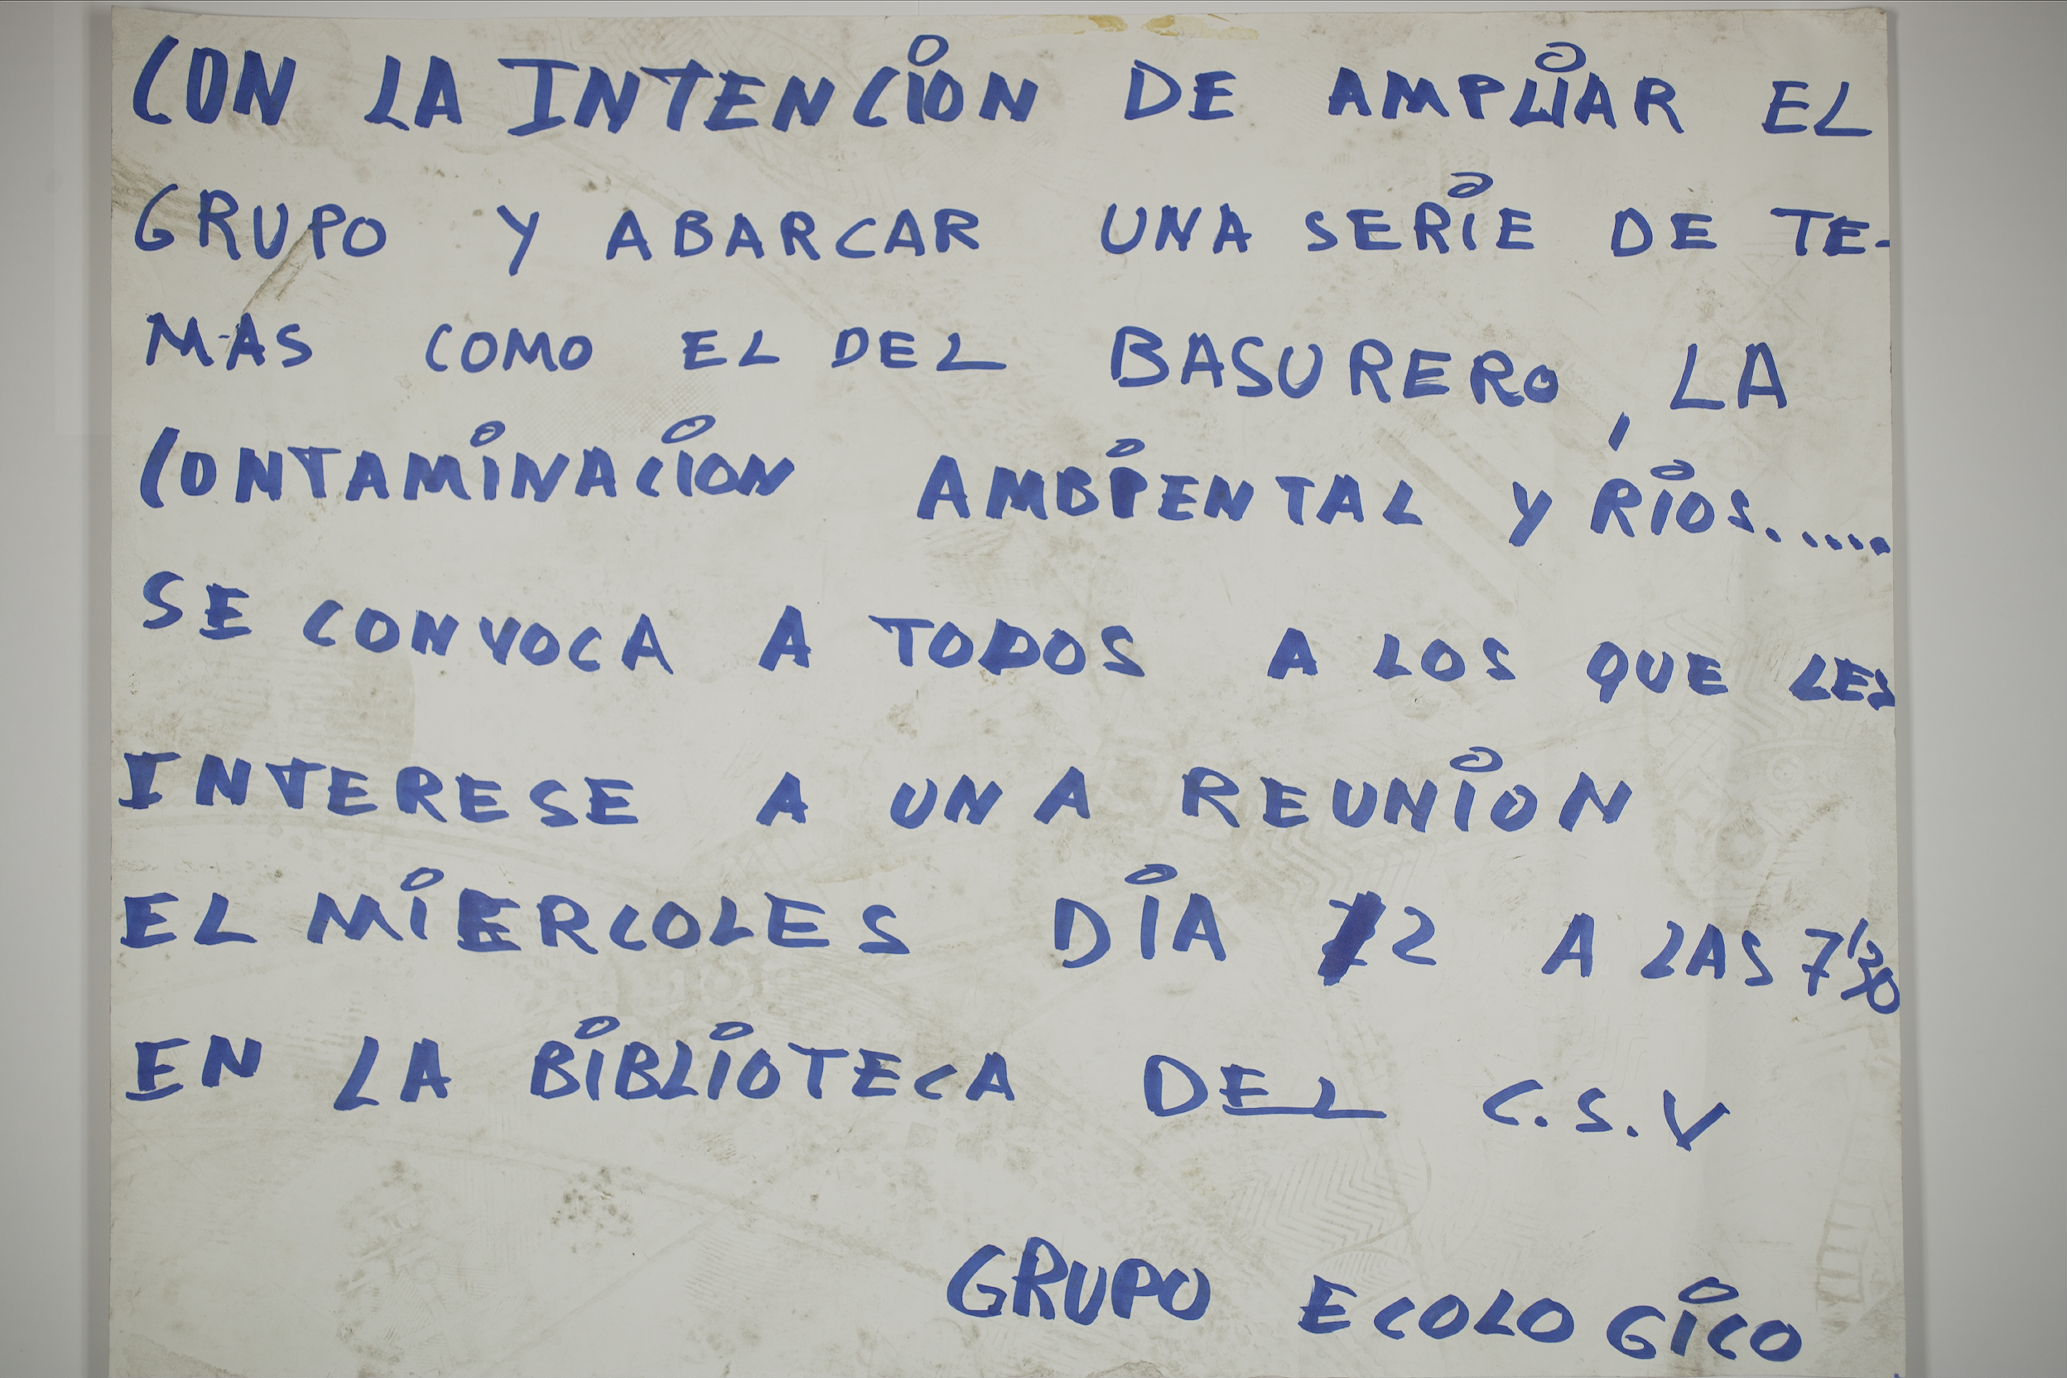 CON LA INTENCION DE AMPLIAR EL
GRUPO Y ABARCAR UNA SERIE DE TE-
MAS COMO EL DEL BASURERO, LA
CONTAMINACION AMBIENTAL Y RIOS......
SE CONVOCA A TODOS A LOS QUE LES
INTERESE A UNA REUNION
EL MIERCOLES DIA 12 A LAS 7'30
EN LA BIBLIOTECA DEL C.S.V
GRUPO ECOLOGICO